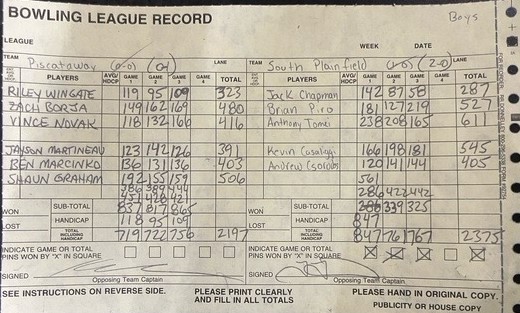 BOWLING LEAGUE RECORD Boys
LEAGUE WEEK DATE
TEAM Piscataway (0-0) (0-1) LANE TEAM South Plainfield (0-0) (2-0) LANE
PLAYERS AVG/HDCP GAME 1 GAME 2 GAME 3 GAME 4 TOTAL PLAYERS AVG/HDCP GAME 1 GAME 2 GAME 3 GAME 4 TOTAL
RILEY WINGATE 119 95 109 323 Jack Chapman 142 87 58 287
ZACH BORJA 149 162 169 480 Brian Piro 181 127 219 527
VINCE NOVAK 118 132 166 416 Anthony Tomei 238 208 165 611
JAYSON MARTINEAU 123 142 126 391 Kevin 166 198 181 545
BEN MARCINKO 136 131 136 403 Andrew 120 141 144 405
SHAUN GRAHAM 192 155 159 506 561
386 389 444 286 422 442
451 428 421
WON SUB-TOTAL 837 817 865 WON SUB-TOTAL 339 325
LOST HANDICAP 118 95 109 LOST HANDICAP 847
TOTAL INCLUDING HANDICAP 719 722 756 2197 TOTAL INCLUDING HANDICAP 847 761 767 2375
INDICATE GAME OR TOTAL PINS WON BY "X" IN SQUARE INDICATE GAME OR TOTAL PINS WON BY "X" IN SQUARE X X X X
SIGNED SIGNED
Opposing Team Captain. Opposing Team Captain.
SEE INSTRUCTIONS ON REVERSE SIDE. PLEASE PRINT CLEARLY AND FILL IN ALL TOTALS PLEASE HAND IN ORIGINAL COPY.
PUBLICITY OR HOUSE COPY